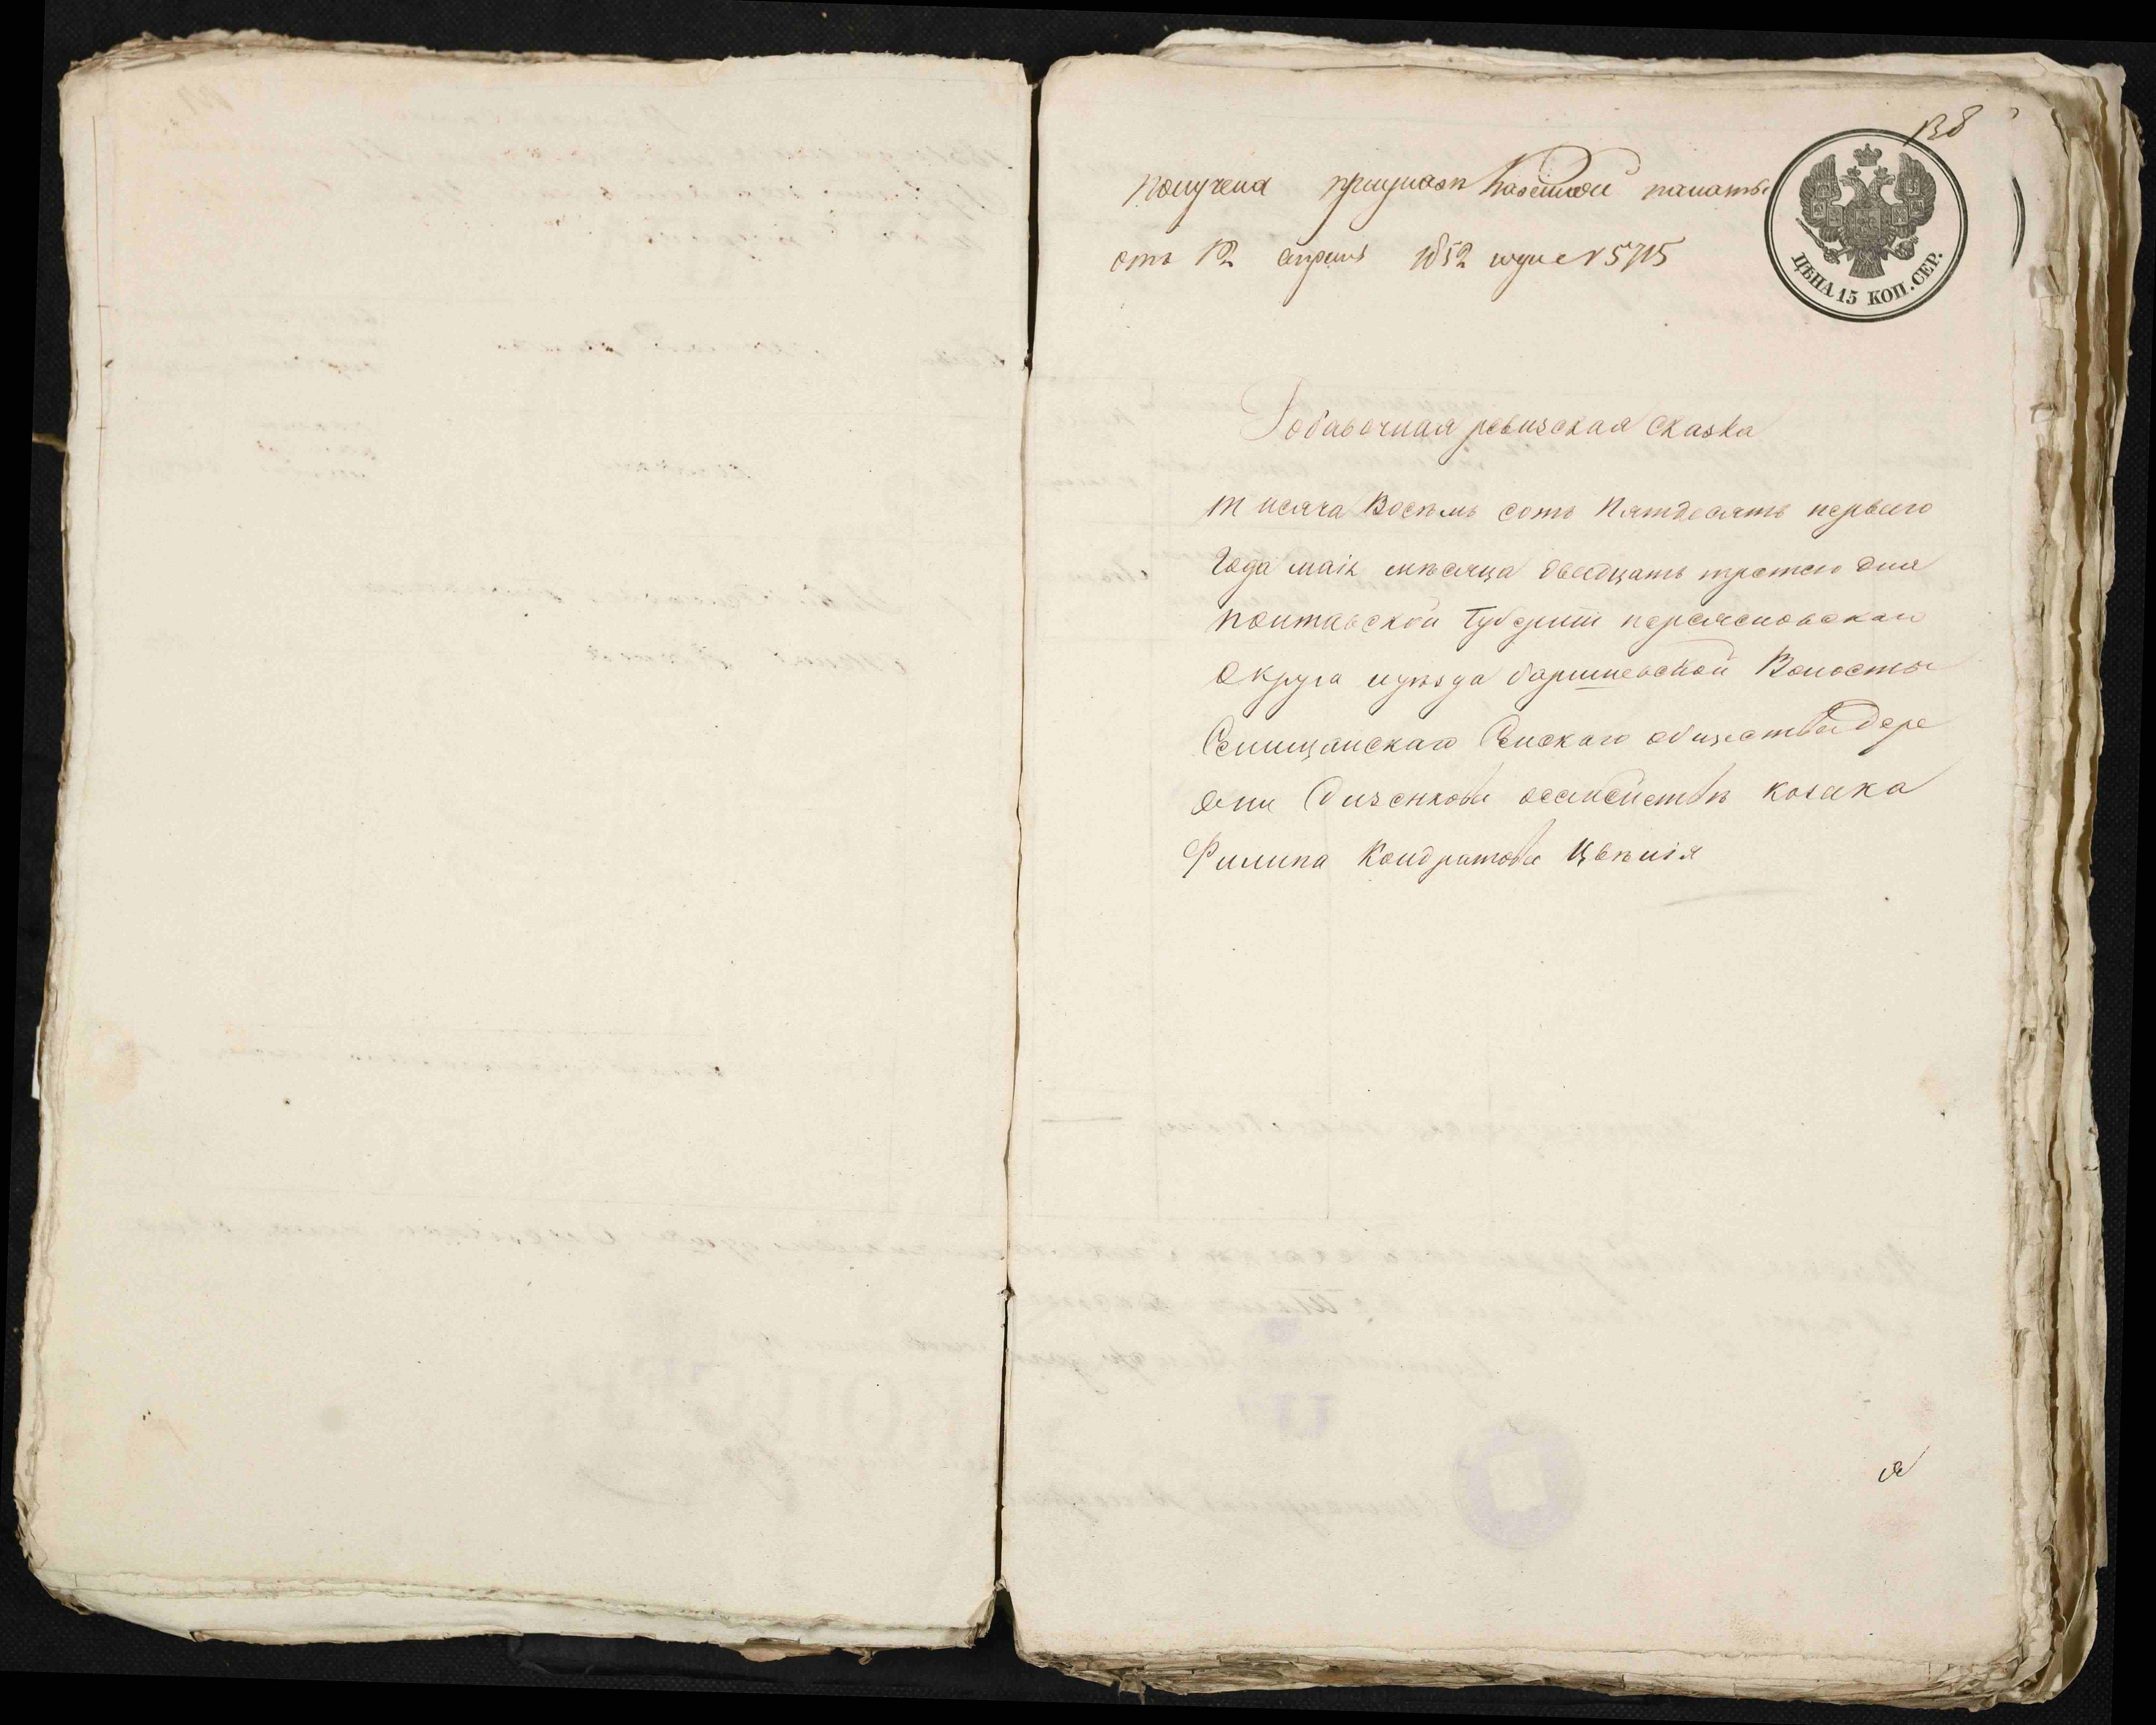 138
получена при указъ Казенной палаты
отъ 12 апреля 1852 года № 5715
ЦѢНА 15 КОП. СЕР.
Добавочная ревизская сказка
тисяча Восѣмь сотъ Пятдесятъ первого
Года маія мѣсяца двадцать третего дня
Полтавской Губерніи переясловскаго
Округа иуѣзда баришевской Волосты
Селищанскаго Селскаго общества дере
вни о семействѣ козака
Филипа Кондратова Цвѣлія